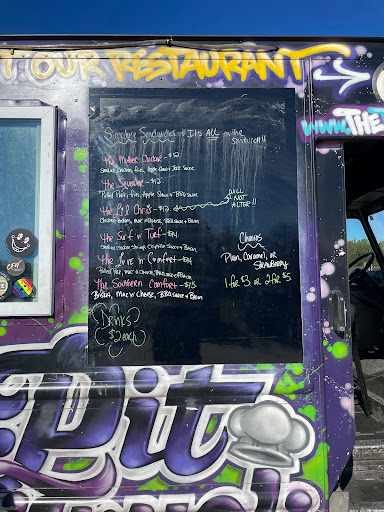 OUR RESTAURANT
Signature Sandwiches → It's ALL on the Sandwich!!!
the Mother Clucker - $12
Smoked Chicken, Fries, Apple Slaw + Sauce
the Squealer - $12
Pulled Pork, Fries, Apple Slaw + BBQ Sauce
the Lil Chris - $12
WILL NOT ALTER!!
Chicken tenders, mac n cheese, BBQ sauce + Bacon
the Surf n' Turf - $14
the Love n' Comfort - $14
Pulled Pork, Mac n Cheese, BBQ Sauce + Bacon
the Southern Comfort - $15
Brisket, Mac n' Cheese, BBQ Sauce + Bacon
Churros
Plain, Caramel, or
Strawberry
1 for $3 or 2 for $5
Drinks
$2 each
www.the
Pit